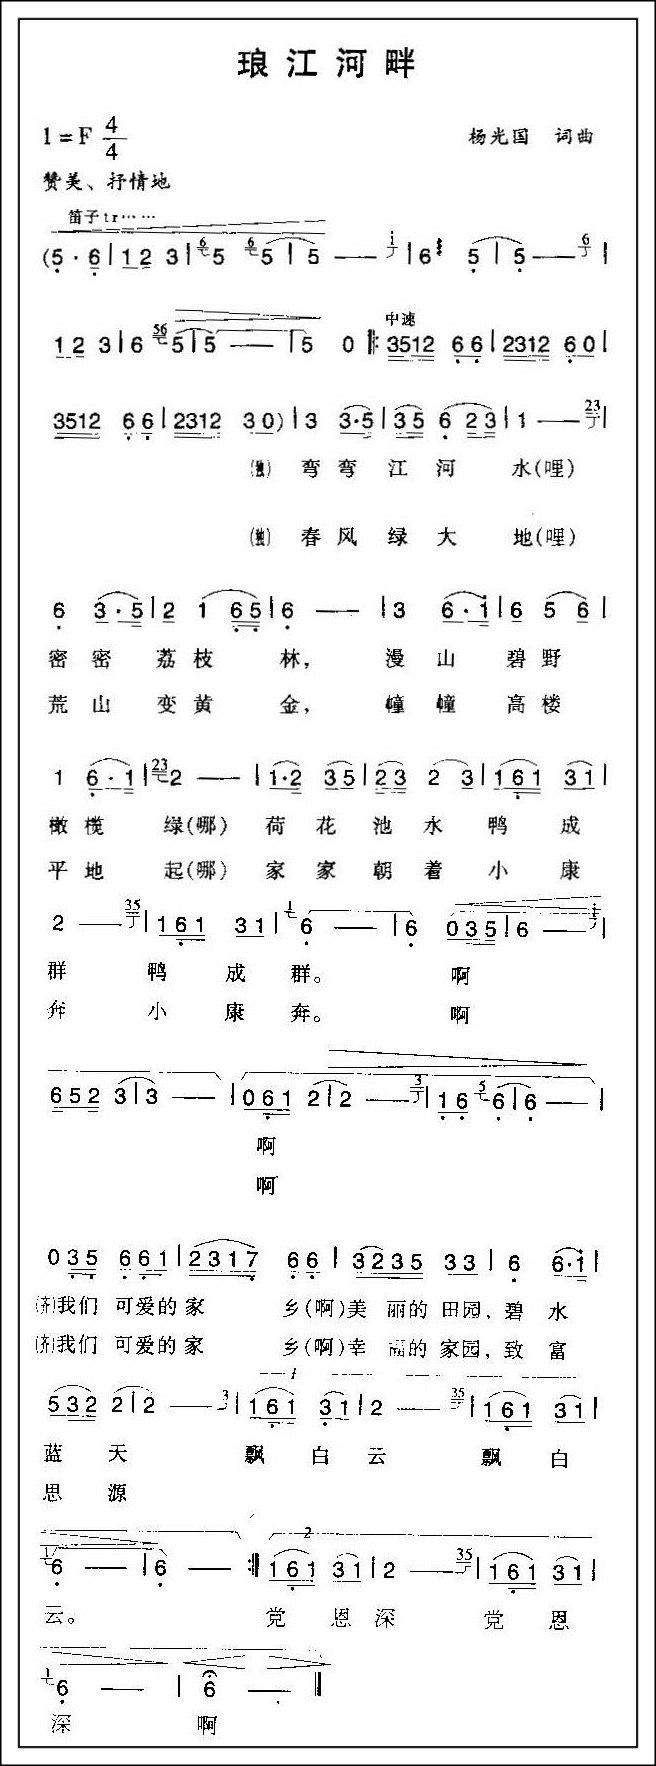 琅江河畔
1=F 4/4
杨光国 词曲
赞美、抒情地
笛子tr……
(5·6|12 3|6 5 6 5|5 — i|6 5|5 — 6|
12 3|6 56 5|5 —|5 0 中速 3512 66|2312 60|
3512 66|2312 30)|3 3·5|35 6 23|1 — 23|
(独) 弯弯江河 水(哩)
(独) 春风绿大 地(哩)
6 3·5|2 1 65|6 — |3 6·i|6 5 6|
密密荔枝 林，漫山碧野
荒山变黄 金，幢幢高楼
1 6·1|23 2 — |1·2 35|23 2 3|161 31|
橄榄 绿(哪) 荷花池水鸭 成
平地 起(哪) 家家朝着小 康
2 — 35|161 31|1 6 — |6 035|6 — i|
群 鸭 成 群。 啊
奔 小 康 奔。 啊
652 3|3 — |061 2|2 — 3|16 5 6|6 — |
啊
啊
035 661|2317 66|3235 33|6 6·1|
(齐)我们 可爱的家 乡(啊)美 丽的 田园，碧 水
(齐)我们 可爱的家 乡(啊)幸 福的 家园，致 富
1
532 2|2 — 3|161 31|2 — 35|161 31|
蓝 天 飘 白 云 飘 白
思 源
2
1 6 — |6 — :‖161 31|2 — 35|161 31|
云。 党 恩 深 党 恩
1 6 — |6 — ‖
深 啊